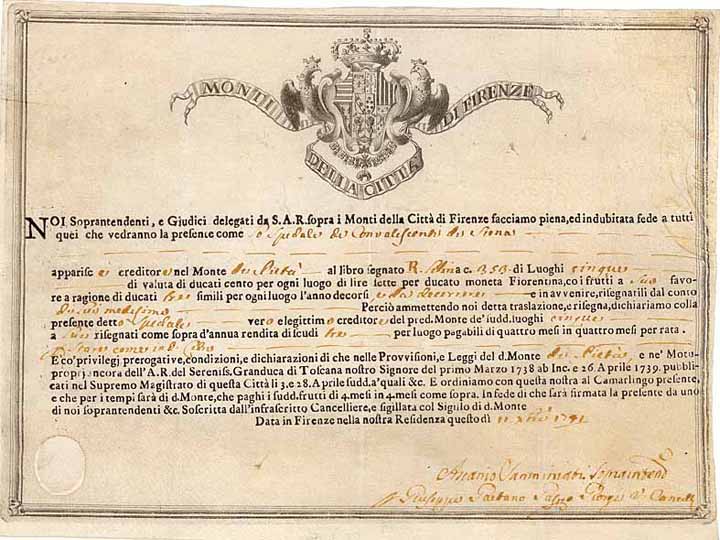 MONTI DI FIRENZE
DELLA CITTÀ
NOI Soprantendenti, e Giudici delegati da S.A.R. sopra i Monti della Città di Firenze facciamo piena, ed indubitata fede a tutti
quei che vedranno la presente come o Spedale de Convalescenti di Siena
apparisce creditore nel Monte di Pietà al libro segnato a c. 353. di Luoghi cinque
di valuta di ducati cento per ogni luogo di lire sette per ducato moneta Fiorentina, co i frutti a suo favo-
re a ragione di ducati tre simili per ogni luogo l'anno decorsi e da decorrere e in avvenire, risegnarili dal conto
di medesimo Perciò ammettendo noi detta traslazione, e risegna, dichiariamo colla
presente detto Spedale vero e legittimo creditore del pred. Monte de' sudd. luoghi cinque
a risegnati come sopra d'annua rendita di scudi tre per luogo pagabili di quattro mesi in quattro mesi per rata.
E co' privilegj prerogative, condizioni, e dichiarazioni di che nelle Provvisioni, e Leggi del d. Monte di Pietà, e ne' Motu-
proprj ancora dell'A.R. del Sereniss. Granduca di Toscana nostro Signore del primo Marzo 1738 ab Inc. e 26 Aprile 1739. pubbli-
cati nel Supremo Magistrato di questa Città li 3. e 28. Aprile sudd. a' quali &c. E ordiniamo con questa nostra al Camarlingo presente,
e che per i tempi sarà di d. Monte, che paghi i sudd. frutti di 4. mesi in 4. mesi come sopra. In fede di che sarà firmata la presente da uno
di noi soprantendenti &c. Soscritta dall'infrascritto Cancelliere, e sigillata col Sigillo di d. Monte
Data in Firenze nella nostra Residenza questo dì 11 Xbre 1741
Soprintend.
Giuseppe Gaetano